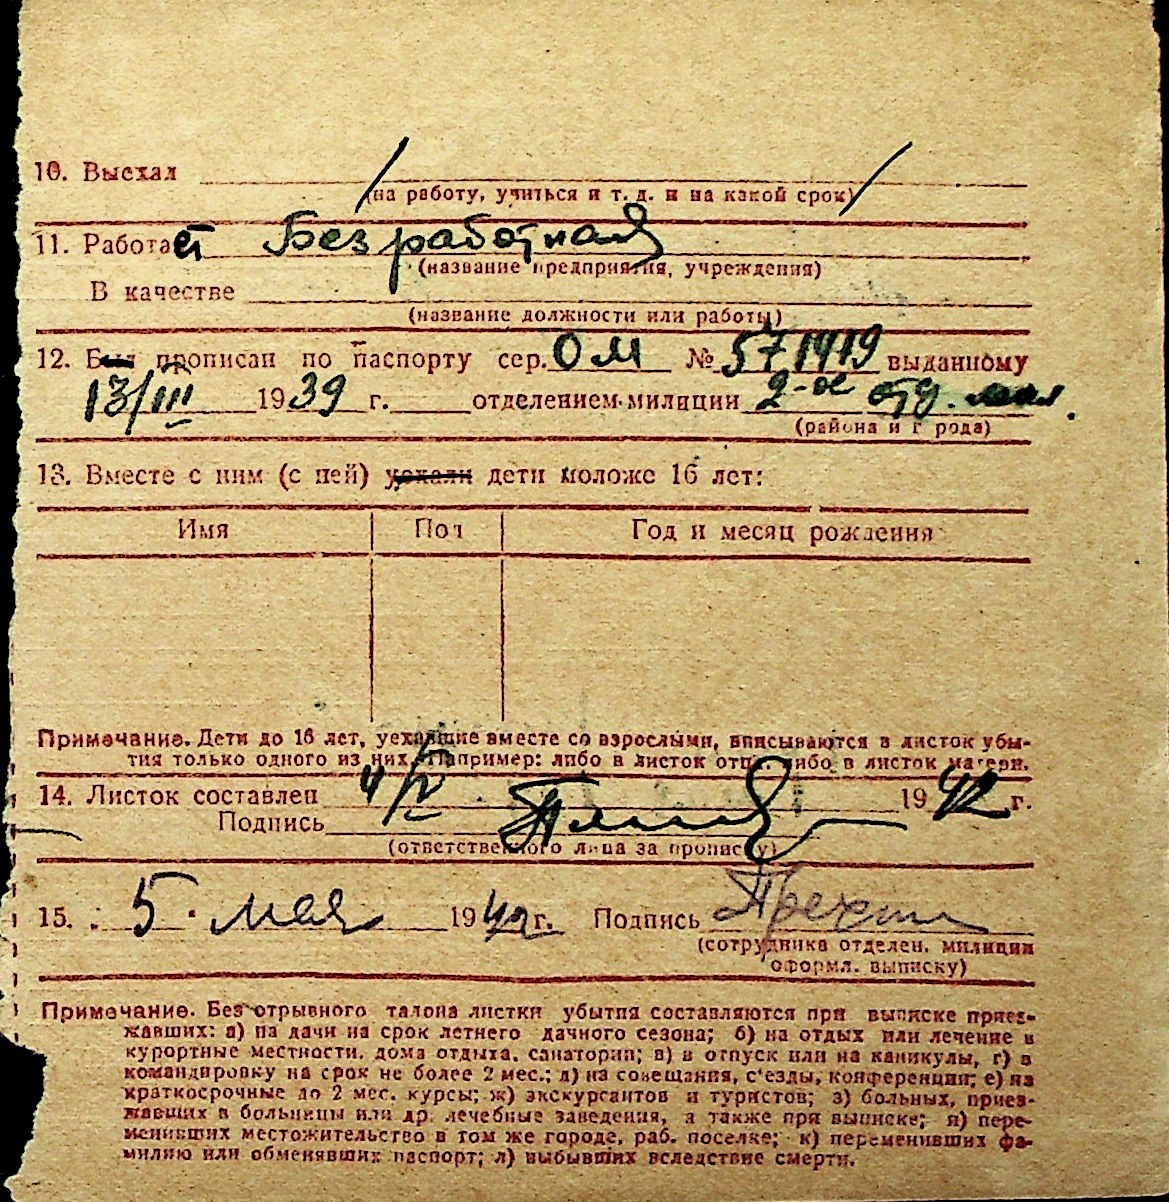 10. Выехал
(на работу, учиться и т. д. и на какой срок)
11. Работает Безработная
(название предприятия, учреждения)
В качестве
(название должности или работы)
12. Был прописан по паспорту сер. ОМ № 571919 выданному
13/III 1939 г. отделением милиции 2-ое отд. мил.
(района и города)
13. Вместе с ним (с ней) уехали дети моложе 16 лет:
Имя Пол Год и месяц рождения
Примечание. Дети до 16 лет, уехавшие вместе со взрослыми, вписываются в листок убы-
тия только одного из них. Например: либо в листок отца, либо в листок матери.
14. Листок составлен 4/V 1942 г.
Подпись
(ответственного лица за прописку)
15. 5. мая 1942 г. Подпись
(сотрудника отделен. милиции
оформл. выписку)
Примечание. Без отрывного талона листки убытия составляются при выписке приез-
жавших: а) на дачи на срок летнего дачного сезона; б) на отдых или лечение в
курортные местности, дома отдыха, санатории; в) в отпуск или на каникулы, г) в
командировку на срок не более 2 мес.; д) на совещания, с'езды, конференции; е) на
краткосрочные до 2 мес. курсы; ж) экскурсантов и туристов; з) больных, приез-
жавших в больницы или др. лечебные заведения, а также при выписке; и) пере-
менивших местожительство в том же городе, раб. поселке; к) переменивших фа-
милию или обменявших паспорт; л) выбывших вследствие смерти.